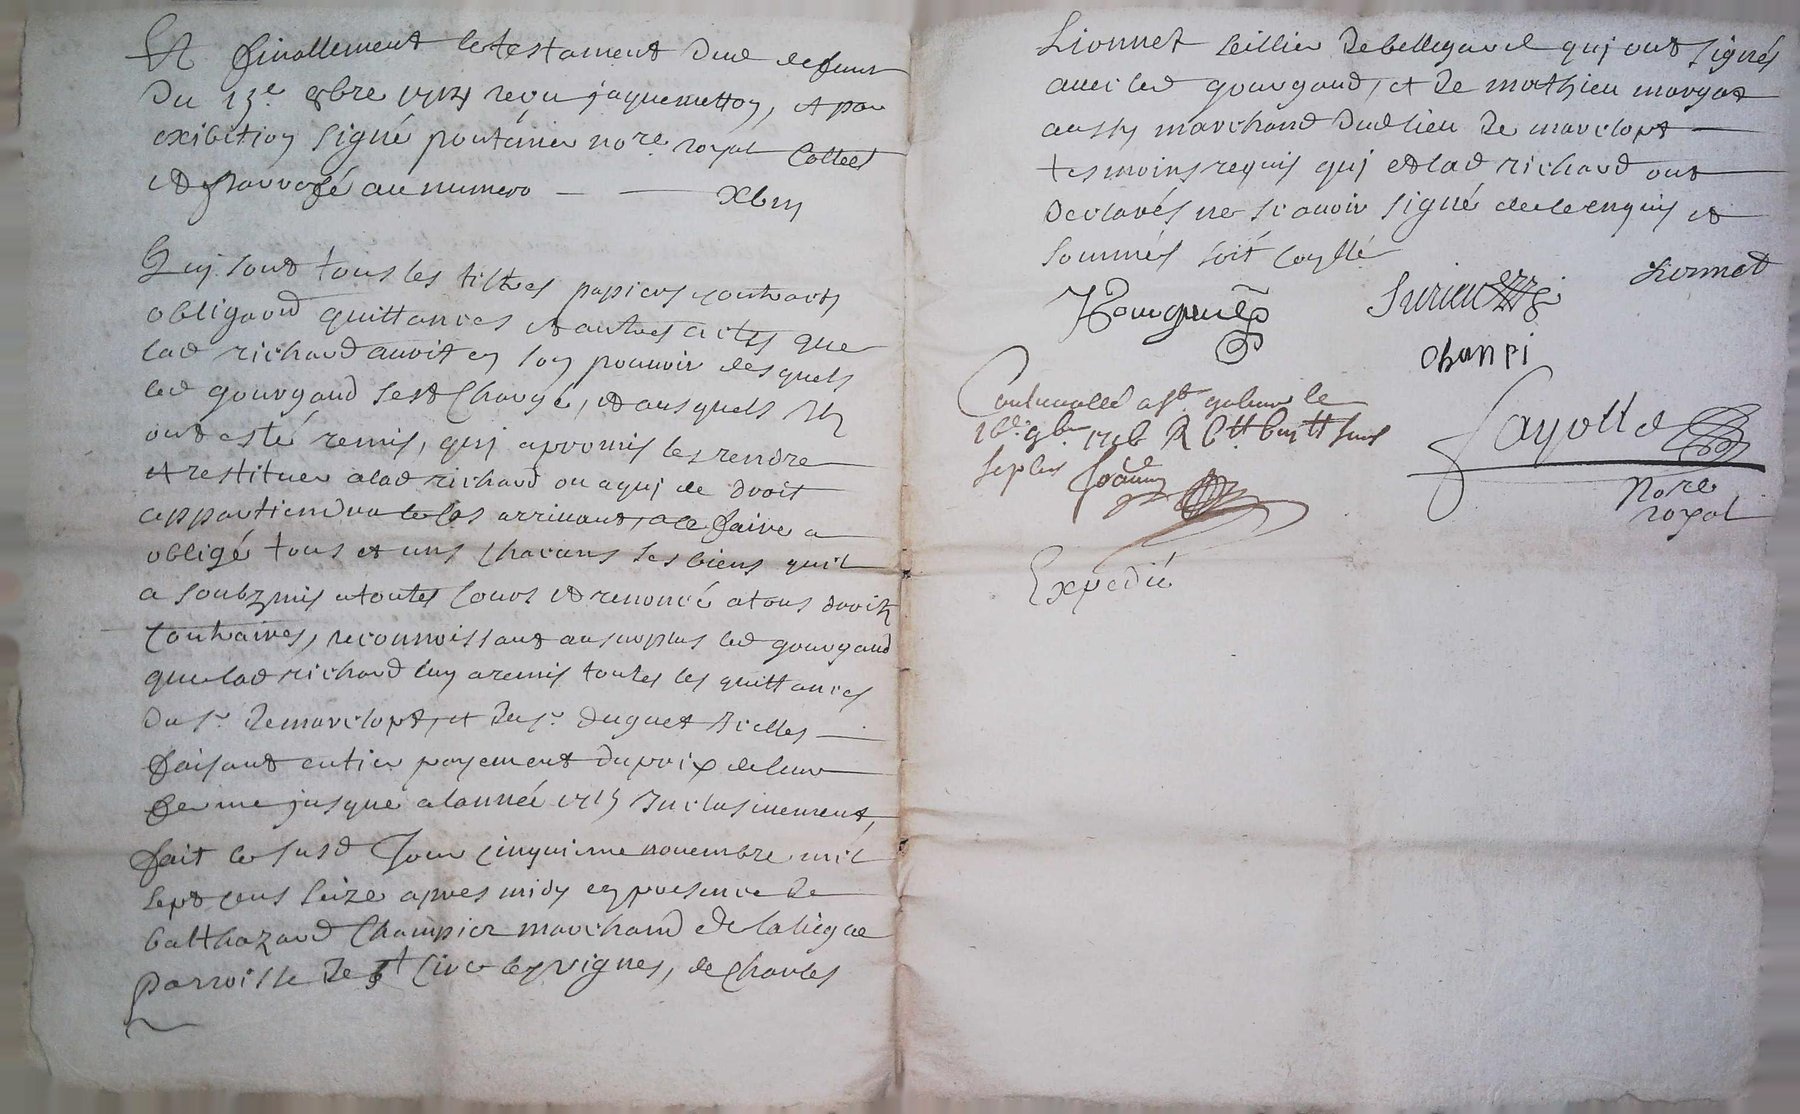 Et finallement le testament dud defunt
du 13e 8bre 1712 reçu jaquemetton, et par
exibition signé pontanier nore royal Cotteé
et parraffé au numero — — xbııı
Qui sont tous les tiltres papiers contracts
obligaond quittances et autres actes que
lad richard avoit en son pouvoir desquels
led gourgaud sest Chargé, et ausquels Ilz
ont esté remis, qui a promis les rendre
et restituer a lad richard ou a qui de droit
appartiendra le cas arrivant, a ce faire a
obligé tous et uns chacuns ses biens quil
a soubzmis a toutes Cours et renoncé a tous droitz
Contraires, reconnoissant au surplus led gourgaud
que lad richard luy a remis toutes les quittances
du sr de marclopt, et du sr duguet Icelles —
faisant entier payement du prix de leur
ferme jusque a lannée 1715 Inclusivement,
fait le susd Jour Cinquieme novembre mil
sept cens seize apres midy en presence de
balthazard Champier marchand de la liegue
parroisse de St Cire les vignes, de Charles
Lionnet seillier de bellegarde qui ont signés
avec led gourgaud, et de mathieu margot
aussy marchand dud lieu de marclopt —
tesmoins requis qui et lad richard ont
declarés ne scavoir signé de ce enquis et
sommés soit Conllé
Gourgaud
Lionnet
Chanpi
Controllé a St galmier le
9bre 1716
sep les
fayolle
nore
royal
Expedié